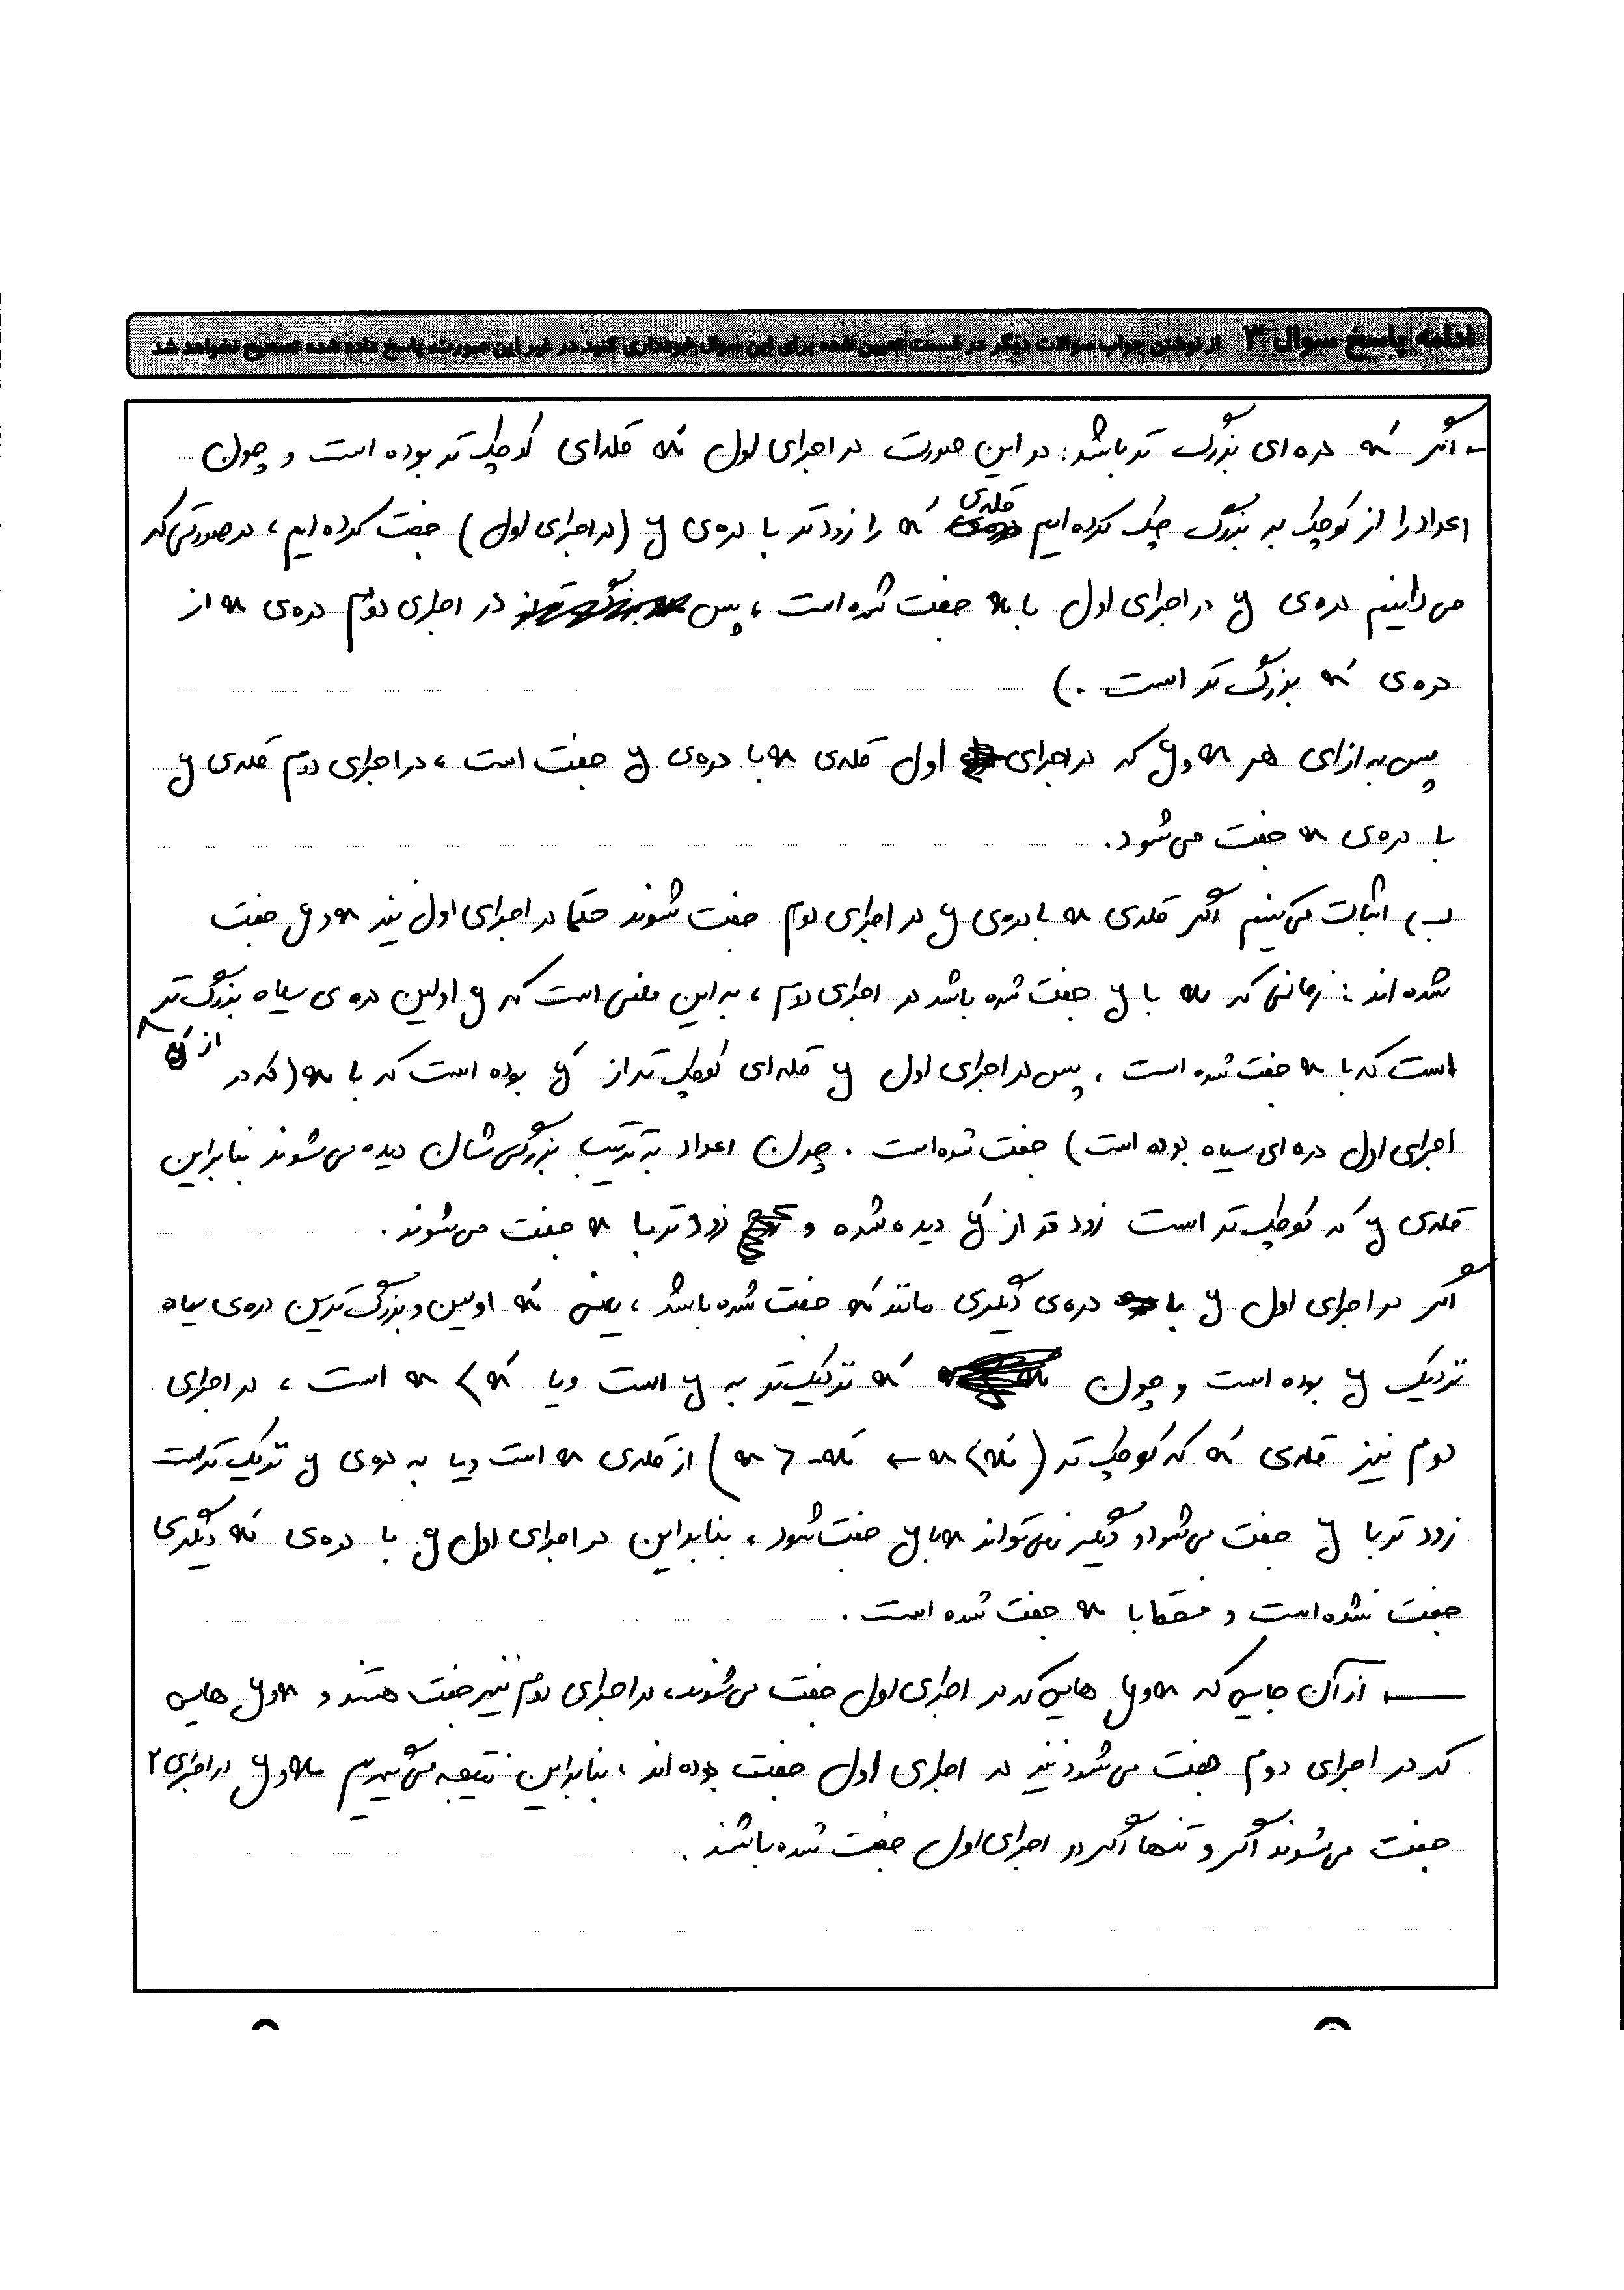 ادامه پاسخ سوال ۳ از نوشتن جواب سوالات دیگر در قسمت تعیین شده برای این سوال خودداری کنید در غیر این صورت، پاسخ داده شده تصحیح نخواهد شد
- اگر x́ دره ای بزرگ تر باشد: در این صورت در اجرای اول x́ قله‌ای کوچک تر بوده است و چون
اعداد را از کوچک به بزرگ چک کرده ایم قله‌ی x́ را زودتر با دره‌ی y (در اجرای اول) جفت کرده ایم، در صورتی که
می دانیم دره‌ی y در اجرای اول با x جفت شده است، پس در اجرای دوم دره‌ی x از
دره‌ی x́ بزرگ تر است.)
پس به ازای هر x و y که در اجرای اول قله‌ی x با دره‌ی y جفت است، در اجرای دوم قله‌ی y
با دره‌ی x جفت می شود.
ب) اثبات می کنیم اگر قله‌ی x با دره‌ی y در اجرای دوم جفت شوند حتما در اجرای اول نیز x و y جفت
شده اند: زمانی که x با y جفت شده باشد در اجرای دوم، به این معنی است که y اولین دره ی سیاه بزرگ تر
از ý
است که با x جفت شده است. پس در اجرای اول y قله ای کوچک تر از ý بوده است که با x (که در
اجرای اول دره ای سیاه بوده است) جفت شده است. چون اعداد به ترتیب بزرگی شان دیده می شوند بنابراین
قله‌ی y که کوچک تر است زودتر از ý دیده شده و زودتر با x جفت می شوند.
اگر در اجرای اول y با دره‌ی دیگری مانند x́ جفت شده باشد، یعنی x́ اولین و بزرگ ترین دره‌ی سیاه
نزدیک y بوده است و چون x́ نزدیک تر به y است ویا x́ > x است، در اجرای
دوم نیز قله‌ی x́ که کوچک تر (x́ > x ← -x́ < x) از قله‌ی x است ویا به دره‌ی y نزدیک تر است
زودتر با y جفت می شود و دیگر نمی تواند x با y جفت شود، بنابراین در اجرای اول y با دره‌ی x́ دیگری
جفت نشده است و فقط با x جفت شده است.
← از آن جایی که x و y هایی که در اجرای اول جفت می شوند، در اجرای دوم نیز جفت هستند و x و y هایی
که در اجرای دوم جفت می شوند نیز در اجرای اول جفت بوده اند، بنابراین نتیجه می گیریم x و y در اجرای ۲
جفت می شوند اگر و تنها اگر در اجرای اول جفت شده باشند.